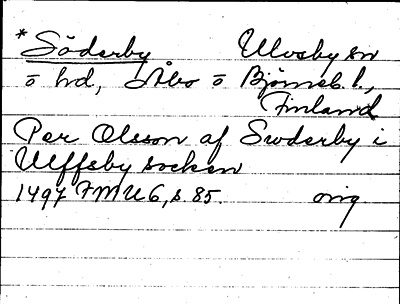 *Söderby Ulvsby sn
o hd, Åbo o Björneb. l.,
Finland
Per Olsson af Swderby i
Ulffsby socken
1497 FMU 6, s. 85. orig